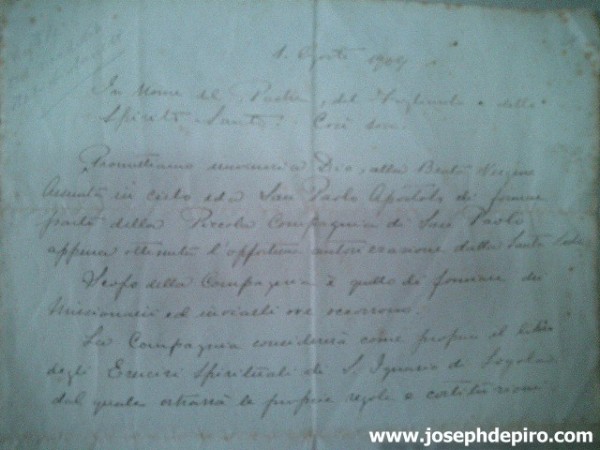 1. Agosto 1909
In Nome del Padre, del Figliuolo e dello
Spirito Santo. Così sia.
Promettiamo a Dio, alla Beata Vergine
Assunta in cielo ed a San Paolo Apostolo di formar
parte della Piccola Compagnia di San Paolo
appena ottenuta l'opportuna autorizzazione dalla Santa Sede.
Scopo della Compagnia è quello di formare dei
Missionarii ed inviarli ove occorrono.
La Compagnia considererà come proprio il
degli Esercizi Spirituali di S. Ignazio di Loyola
dal quale estrarrà le proprie regole e costituzioni.
www.josephdepiro.com